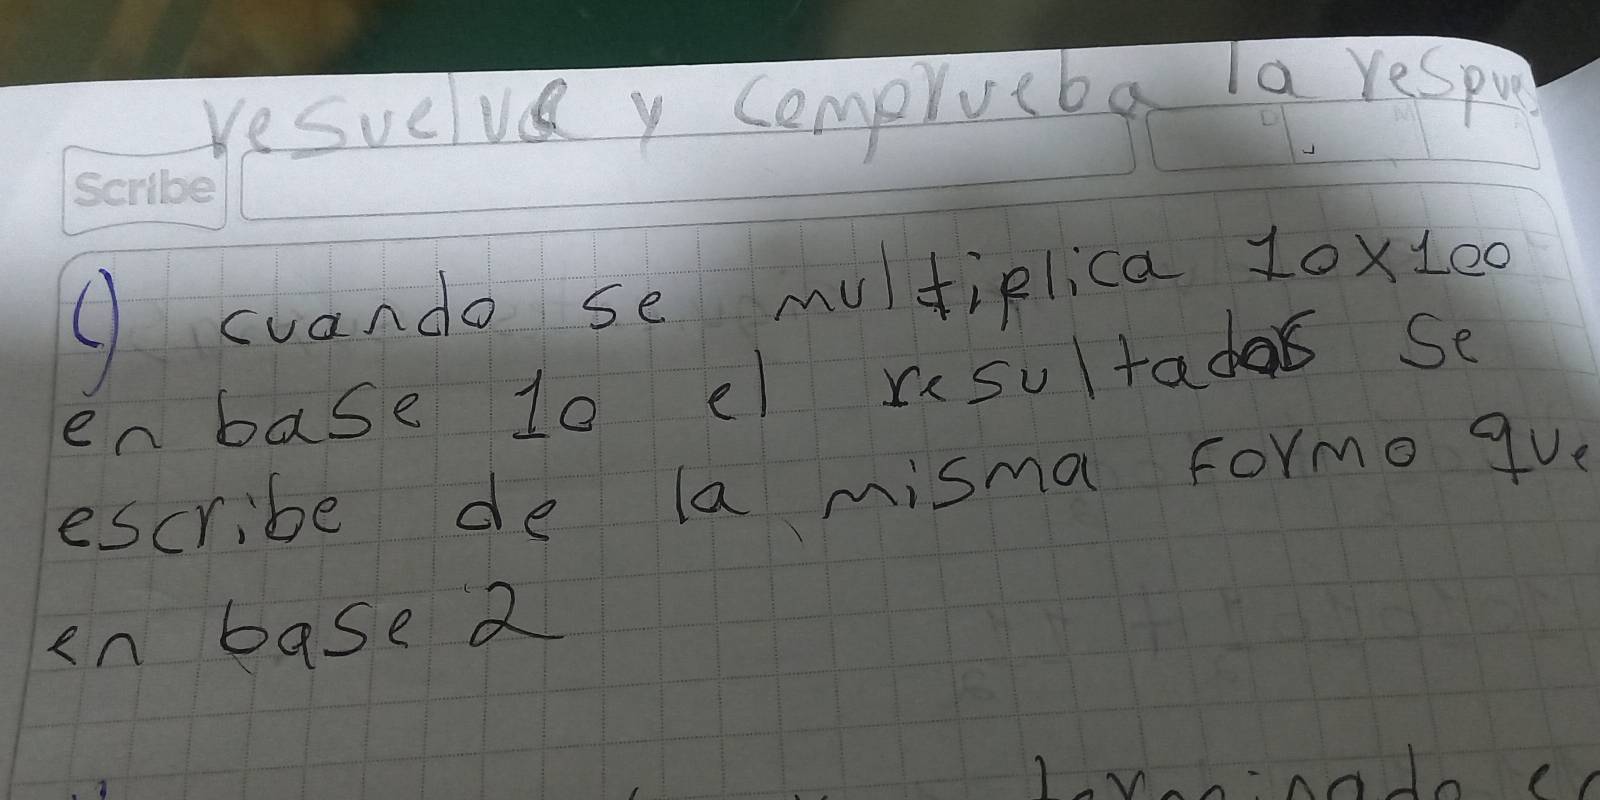 resuelve y comprueba la respues
Scribe
D M A
c) cuando se multiplica 10x100
en base 10 el resultados se
escribe de la misma formo que
en base 2
terminado en